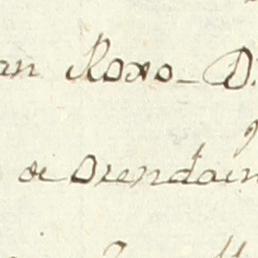 an Roxo - D.
de Orendain